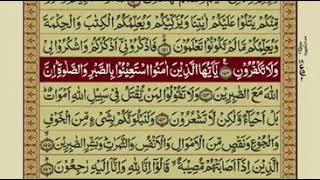 مِّنْكُمْ يَتْلُوْا عَلَيْكُمْ اٰيٰتِنَا وَيُزَكِّيْكُمْ وَيُعَلِّمُكُمُ الْكِتٰبَ وَالْحِكْمَةَ
وَيُعَلِّمُكُمْ مَّا لَمْ تَكُوْنُوْا تَعْلَمُوْنَ ﴿۱۵۱﴾ فَاذْكُرُوْنِيْ اَذْكُرْكُمْ وَاشْكُرُوْا لِيْ
وَلَا تَكْفُرُوْنِ ﴿۱۵۲﴾ يٰاَيُّهَا الَّذِيْنَ اٰمَنُوا اسْتَعِيْنُوْا بِالصَّبْرِ وَالصَّلٰوةِ اِنَّ
اللّٰهَ مَعَ الصّٰبِرِيْنَ ﴿۱۵۳﴾ وَلَا تَقُوْلُوْا لِمَنْ يُّقْتَلُ فِيْ سَبِيْلِ اللّٰهِ اَمْوَاتٌ
بَلْ اَحْيَآءٌ وَّلٰكِنْ لَّا تَشْعُرُوْنَ ﴿۱۵۴﴾ وَلَنَبْلُوَنَّكُمْ بِشَيْءٍ مِّنَ الْخَوْفِ
وَالْجُوْعِ وَنَقْصٍ مِّنَ الْاَمْوَالِ وَالْاَنْفُسِ وَالثَّمَرٰتِ وَبَشِّرِ الصّٰبِرِيْنَ ﴿۱۵۵﴾
الَّذِيْنَ اِذَآ اَصَابَتْهُمْ مُّصِيْبَةٌ قَالُوْٓا اِنَّا لِلّٰهِ وَاِنَّآ اِلَيْهِ رٰجِعُوْنَ ﴿۱۵۶﴾